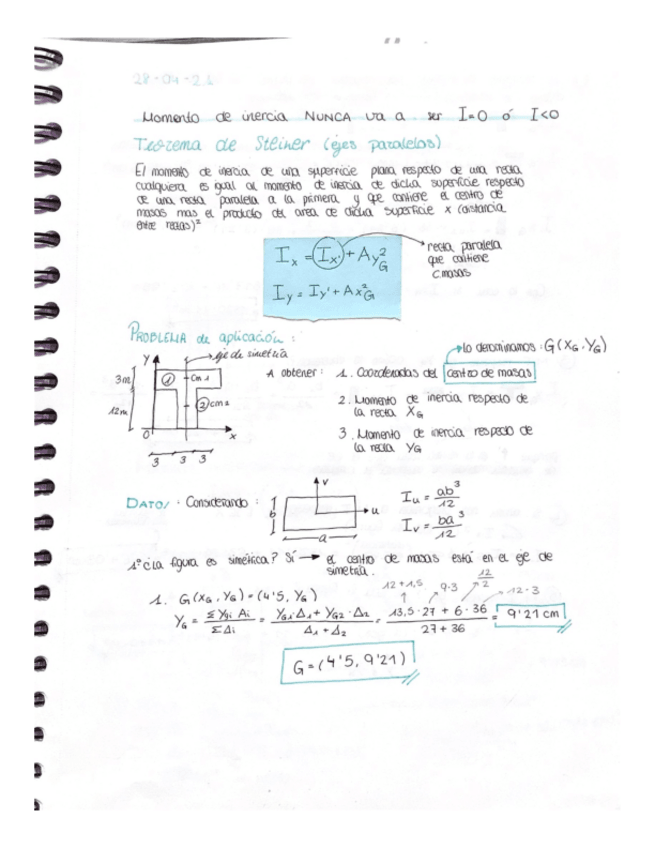 28-04-21
Momento de inercia NUNCA va a ser I=0 ó I<0
Teorema de Steiner (ejes paralelos)
El momento de inercia de una superficie plana respecto de una recta
cualquiera es igual al momento de inercia de dicha superficie respecto
de una recta paralela a la primera y que contiene el centro de
masas mas el producto del area de dicha superficie x (distancia
entre rectas)²
Ix = Ix' + Ay²G
recta paralela
que contiene
c.masas
Iy = Iy' + Ax²G
PROBLEMA de aplicación:
lo denominamos: G(XG, YG)
Y
eje de simetría
A obtener: 1. Coordenadas del centro de masas
3m
1
cm1
12m
2
cm2
2. Momento de inercia respecto de
la recta XG
0
x
3 3 3
3. Momento de inercia respecto de
la recta YG
DATO/: Considerando:
v
u
b
a
Iu = ab³/12
Iv = ba³/12
1º ¿La figura es simétrica? Sí → el centro de masas está en el eje de
simetría.
12+1,5 9·3 12/2 12·3
1. G(XG, YG) = (4'5, YG)
YG = ΣYgi Ai / ΣAi = YG1·A1 + YG2·A2 / A1 + A2 = 13,5·27 + 6·36 / 27 + 36 = 9'21 cm
G=(4'5, 9'21)